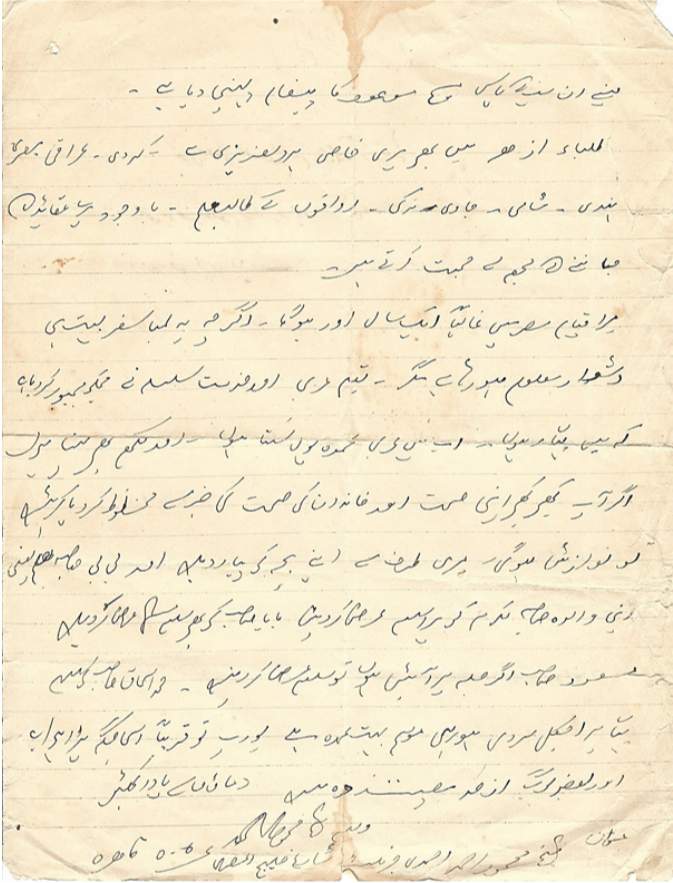 میں نے ان سب کے پاس مسیح موعود کا پیغام پہنچا دیا ہے ۔
طلباء ازھر میں بھی میری خاصی ہردلعزیزی ہے ۔ کردی ۔ عراقی
ہندی ۔ شامی ۔ جاوی ۔ ترکی ۔ رواقوں کے طالبعلم ۔ باوجود میرے عقائد
جاننے کے مجھ سے محبت کرتے ہیں ۔
میرا قیام مصر میں غالباً ایک سال اور ہوگا ۔ اگرچہ یہ لمبا سفر بہت ہی
دشوار معلوم ہو رہا ہے مگر ۔ عربی اور خدمت سلسلہ نے مجھکو مجبور کر دیا ہے
کہ میں ۔ اب میں عربی عمدہ بول سکتا ہوں ۔ اور لکھ بھی سکتا ہوں
اگر آپ کبھی کبھی اپنی صحت اور خاندان کی صحت کی خبر سے محظوظ کر دیا کریں
تو نوازش ہوگی ۔ میری طرف سے اپنے بچہ کو پیار دیں اور بی بی صاحبہ یعنی
اپنی والدہ صاحبہ مکرمہ کو میرا سلام عرض کر دیں بابا صاحب کو بھی سلام عرض کر دیں
مسعود صاحب اگر جلسہ پر آئیں ہوں تو سلام عرض کر دیں ۔ اسحاق صاحب کو سلام
یہاں پر آجکل سردی ہو رہی موسم بہت عمدہ ہے یورپ تو قریباً اسی جگہ
اور بعض لوگ از حد ہیں دعاؤں سے یاد رکھیں
والسلام
عنوان شیخ محمود احمد احمدی شارع خلیج المصری قاھرہ